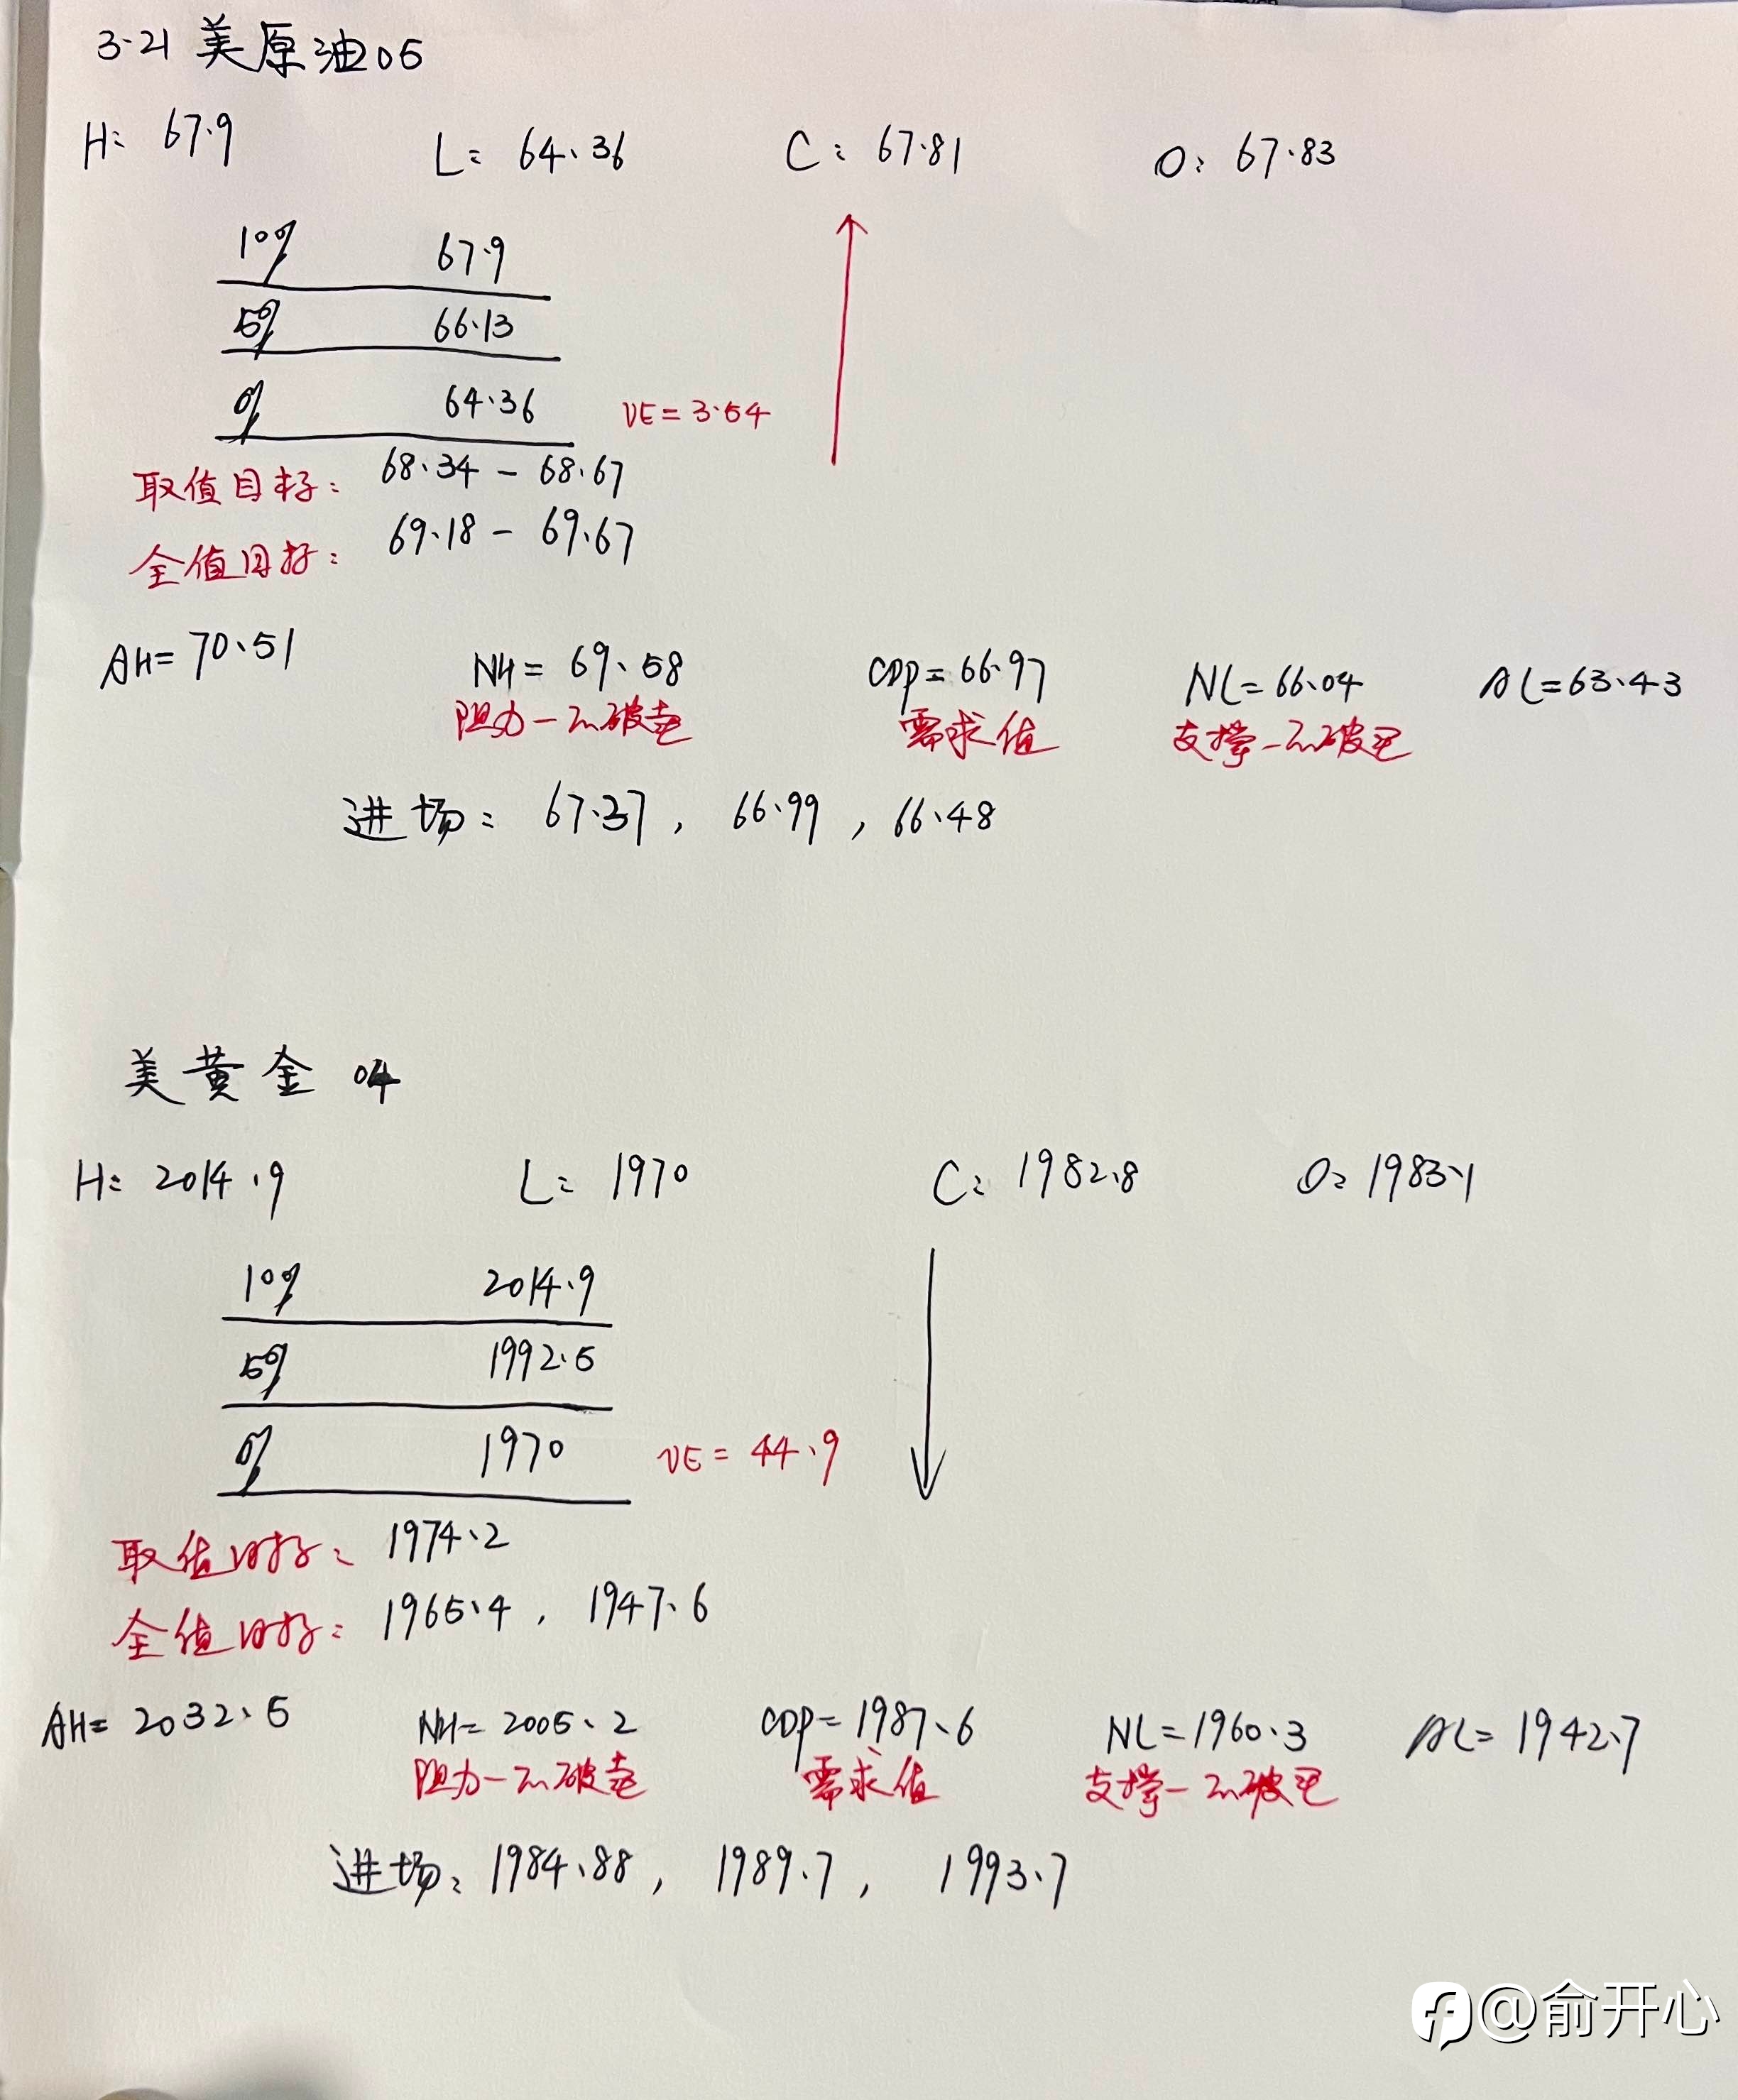 3-21 美原油05
H: 67.9 L: 64.36 C: 67.81 O: 67.83
10% 67.9
5% 66.13
0% 64.36 VE=3.54
取值目标: 68.34 - 68.67
全值目标: 69.18 - 69.67
AH=70.51 NH=69.58 CDP=66.97 NL=66.04 AL=63.43
阻力一 破 需求值 支撑一 破
进场: 67.37, 66.99, 66.48
美黄金 04
H: 2014.9 L: 1970 C: 1982.8 O: 1983.1
10% 2014.9
5% 1992.5
0% 1970 VE=44.9
取值目标: 1974.2
全值目标: 1965.4, 1947.6
AH=2032.5 NH=2005.2 CDP=1987.6 NL=1960.3 AL=1942.7
阻力一 破 需求值 支撑一 破
进场: 1984.88, 1989.7, 1993.7
@俞开心